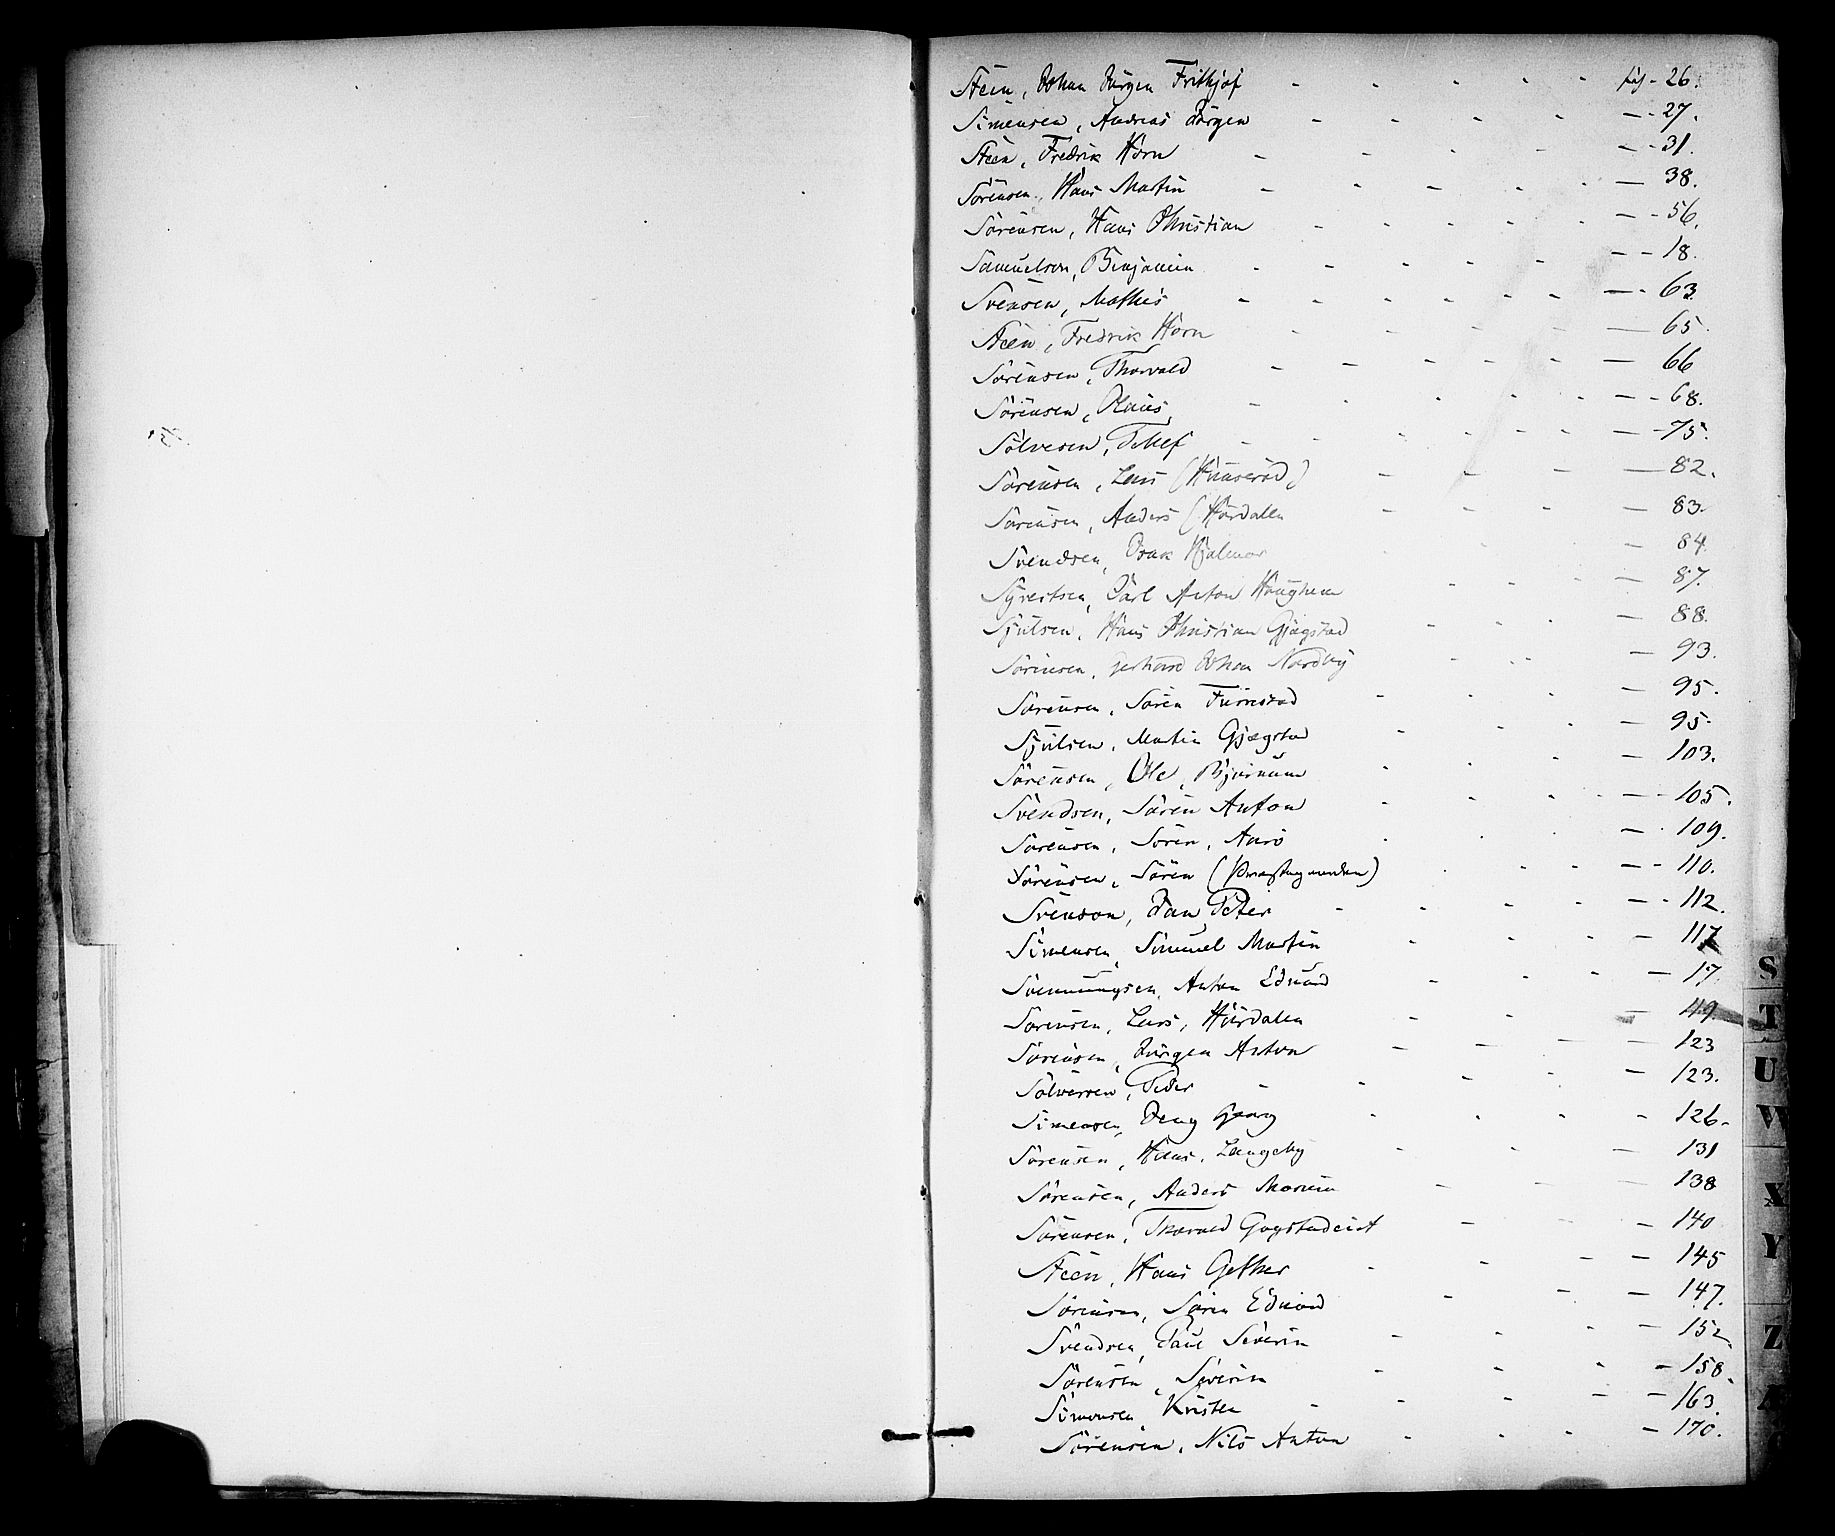 Steen, Johan Jörgen Frithjof - - - - - pag - 26.
Simensen, Andreas Jörgen - - - - - - 27.
Steen, Fredrik Horn - - - - - - 31.
Sörensen, Hans Martin - - - - - - 38.
Sörensen, Hans Christian - - - - - - 56.
Samuelsen, Benjamin - - - - - - - 18.
Svensen, Mathis - - - - - - - - 63
Steen, Fredrik Horn - - - - - - 65.
Sörensen, Thorvald - - - - - - 66
Sörensen, Olaus, - - - - - - - 68.
Sölvesen, Tellef - - - - - - - - 75.
Sörensen, Lars (Hunserød) - - - - 82.
Sörensen, Anders (Hördalen - - - - 83.
Svendsen, Isak Hjalmar - - - 84
Syvertsen, Carl Anton Haughem - - - - 87.
Sjulsen, Hans Christian Gjøgstad - - - 88.
Sörensen, Gerhard Johan Nordby - - - 93.
Sörensen, Sören Furustad - - - - 95.
Sjulsen, Martin Gjøgstad - - - - 95.
Sörensen, Ole, Bjørnum - - - - 103.
Svendsen, Sören Anton - - - - - - 105.
Sörensen, Sören, Aarö - - - - - 109.
Sörensen, Sören () - - - - - 110.
Svenson, Jan Peter - - - - - - 112.
Simensen, Simuel Martin - - - - 117
Svennungsen, Anton Edvard - - - - 17.
Sörensen, Lars, Hördalen - - - 49.
Sörensen, Jörgen Anton - - - - 123
Sölvesen, Peder - - - - - 123.
Simensen, Georg - - - - 126.
Sörensen, Hans, Langeby - - - 131
Sörensen, Anders - - - 138
Sörensen, Thorvald - - - 140
Steen, Hans Gether - - - - 145
Sörensen, Sören Edvard - - - 147.
Svendsen, Paul Severin - - - - 152
Sörensen, Severin - - - - 158.
Simonsen, Kristen - - - - - 163.
Sörensen, Nils Anton - - - - 170.
S
T
U
W
X
Y
Z